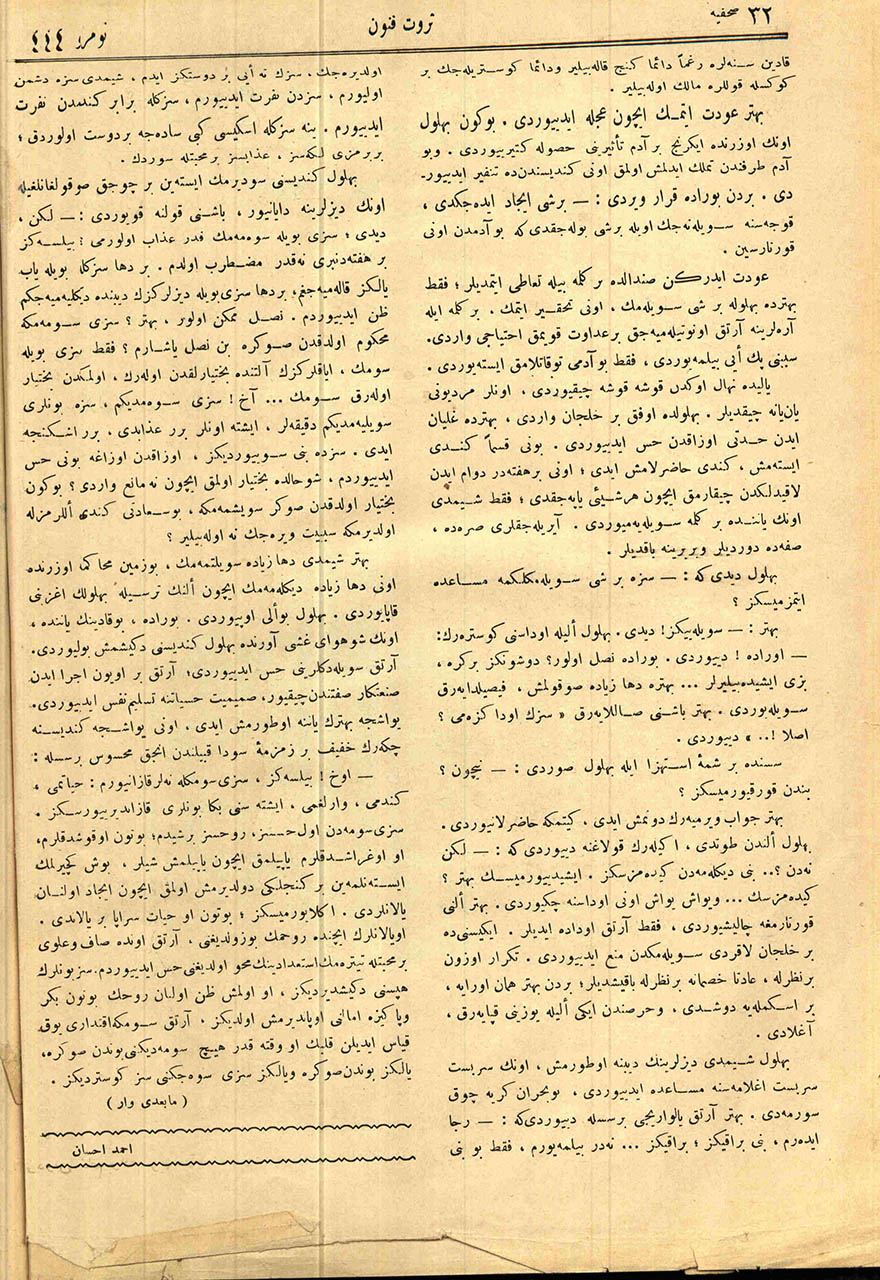 ٣٢ صحیفه
ثروت فنون
نومرو ٤٤٤
قادین سنه‌لره رغماً دائما کنج قاله‌بیلیر ودائما کوستریله‌جك بر
کوکسله قوللره مالك اوله‌بیلیر .
بهتر عودت ایتمك ایچون عجله ایدییوردی . بوکون بهلول
اونك اوزرنده ایکرنج بر آدم تأثیرینی حصوله کتیرییوردی . وبو
آدم طرفندن تملك ایدلمش اولمق اونی کندیسندن‌ده تنفیر ایدییور-
دی . بردن بوراده قرار ویردی : — برشی ایجاد ایده‌جکدی ،
قوجه‌سنه سویله‌نه‌جك اویله برشی بوله‌جقدی که بو آدمدن اونی
قورتارسین .
عودت ایدرکن صندالده بر کلمه بیله تعاطی ایتمدیلر ؛ فقط
بهترده بهلوله بر شی سویله‌مك ، اونی تحقیر ایتمك ، بر کلمه ایله
آره‌لرینه آرتق اونوتیله‌میه‌جق بر عداوت قویمق احتیاجی واردی .
سببنی پك أیی بیلمه‌یوردی ، فقط بو آدمی توقاتلامق ایسته‌یوردی .
یالیده نهال اوکدن قوشه قوشه چیقیوردی ، اونلر مردیونی
یان‌یانه چیقدیلر . بهلولده اوفق بر خلجان واردی ، بهترده غلیان
ایدن حدتی اوزاقدن حس ایدییوردی . بونی قسماً کندی
ایسته‌مش ، کندی حاضرلامش ایدی ؛ اونی بر هفته‌در دوام ایدن
لاقیدلکدن چیقارمق ایچون هرشیئی یاپه‌جقدی ؛ فقط شیمدی
اونك یاننده بر کلمه سویله‌یه‌میوردی . آیریله‌جقلری صره‌ده ،
صفه‌ده دوردیلر وبربرینه باقدیلر .
بهلول دیدی که : — سزه بر شی سویله‌مکلکمه مساعده
ایتمزمیسکز ؟
بهتر : — سویله‌ییکز ! دیدی . بهلول ألیله اوداسنی کوستره‌رك :
— اوراده ! دییوردی . بوراده نصل اولور ؟ دوشونکز برکره ،
بزی ایشیده‌بیلیرلر ... بهتره دها زیاده صوقولمش ، فیصیلدایه‌رق
سویله‌یوردی . بهتر باشنی صاللایه‌رق « سزك اوداکزه‌می ؟
اصلا !.. » دییوردی .
سسنده بر شمهٔ استهزا ایله بهلول صوردی : — نیچون ؟
بندن قورقیورمیسکز ؟
بهتر جواب ویرمیه‌رك دونمش ایدی ، کیتمکه حاضرلانیوردی .
بهلول ألندن طوتدی ، اکیله‌رك قولاغنه دییوردی که : — لکن
نه‌دن ؟.. بنی دیکله‌مه‌دن کیده‌مزسکز . ایشیدییورمیسك بهتر ؟
کیده‌مزسك ... ویواش یواش اونی اوداسنه چکیوردی . بهتر ألنی
قورتارمغه چالیشیوردی ، فقط آرتق اوداده ایدیلر . ایکیسنی‌ده
بر خلجان لاقردی سویله‌مکدن منع ایدییوردی . تکرار اوزون
بر نظرله ، عادتا خصمانه بر نظرله باقیشدیلر ؛ بردن بهتر همان اورایه ،
بر اسکمله‌یه دوشدی ، وحرصندن ایکی ألیله یوزینی قپایه‌رق ،
آغلادی .
بهلول شیمدی دیزلرینك دیبنه اوطورمش ، اونك سربست
سربست اغلامه‌سنه مساعده ایدییوردی ، بو بحران کریه چوق
سورمه‌دی . بهتر آرتق یالواریجی بر سسله دییوردی که : — رجا
ایده‌رم ، بنی براقیکز ؛ براقیکز ... نه‌در بیلمه‌یورم ، فقط بو بنی
اولدیره‌جك ، سزك نه أیی بر دوستکز ایدم ، شیمدی سزه دشمن
اولیورم ، سزدن نفرت ایدییورم ، سزکله برابر کندمدن نفرت
ایدییورم . ینه سزکله اسکیسی کبی ساده‌جه بر دوست اولوردق ؛
بربرمزی لکه‌سز ، عذابسز بر محبتله سوردك .
بهلول کندیسنی سودیرمك ایسته‌ین بر چوجق صوقولغانلغیله
اونك دیزلرینه دایانیور ، باشنی قولنه قویوردی : — لکن ،
دیدی ؛ سزی بویله سوه‌مه‌مك قدر عذاب اولورمی ؟ بیلسه‌کز
بر هفته‌دنبری نه‌قدر مضطرب اولدم . بر دها سزکله بویله یاپ
یالکز قاله‌میه‌جغم ، بر دها سزی بویله دیزلرکزك دیبنده دیکلیه‌میه‌جکم
ظن ایدییوردم . نصل ممکن اولور ، بهتر ؟ سزی سومه‌مکه
محکوم اولدقدن صوکره بن نصل یاشارم ؟ فقط سزی بویله
سومك ، ایاقلرکزك آلتنده بختیارلقدن اوله‌رك ، اولمکدن بختیار
اوله‌رق سومك ... آخ ! سزی سوه‌مدیکم ، سزه بونلری
سویلیه‌مدیکم دقیقه‌لر ، ایشته اونلر برر عذابدی ، برر اشکنجه
ایدی . سزده بنی سوییوردیکز ، اوزاقدن اوزاغه بونی حس
ایدییوردم ، شوحالده بختیار اولمق ایچون نه مانع واردی ؟ بوکون
بختیار اولدقدن صوکر سویشمه‌مکه ، بو سعادتی کندی أللرمزله
اولدیرمکه سببیت ویره‌جك نه اوله‌بیلیر ؟
بهتر شیمدی دها زیاده سویلتمه‌مك ، بو زمین محاکمه اوزرنده
اونی دها زیاده دیکله‌مه‌مك ایچون ألنك ترسیله بهلولك اغزینی
قاپایوردی . بهلول بو ألی اوپییوردی . بوراده ، بوقادینك یاننده ،
اونك شو هوای غشی آورنده بهلول کندیسنی دکیشمش بولیوردی .
آرتق سویله‌دکلرینی حس ایدییوردی ؛ آرتق بر اویون اجرا ایدن
صنعتکار صفتندن چیقیور ، صمیمیت حسیاتنه تسلیم نفس ایدییوردی .
یواشجه بهترك یاننه اوطورمش ایدی . اونی یواشجه کندیسنه
چکه‌رك خفیف بر زمزمهٔ سودا قبیلندن انجق محسوس بر سسله :
— اوخ ! بیلسه‌کز ، سزی سومکله نه‌لر قازانیورم : حیاتمی ،
کندمی ، وارلغمی ، ایشته سنی بکا بونلری قازاندیرییورسکز .
سزی سومه‌دن اول حسسز ، روحسز برشیدم ؛ بوتون اوقوشدقلرم ،
او اوغراشدقلرم یاپیلمق ایچون یاپیلمش شیلر ، بوش کچیرلمك
ایسته‌نلمه‌ین بر کنجلکی دولدیرمش اولمق ایچون ایجاد اولنان
یالانلردی . اکلایورمیسکز ؛ بوتون او حیات سراپا بر یالاندی .
اویالانلرك ایچنده روحمك بوزولدیغنی ، آرتق اونده صاف وعلوی
بر محبتله تیتره‌مك استعدادینك محو اولدیغنی حس ایدییوردم . سز بونلرك
هپسنی دکیشدیردیکز ، او اولمش ظن اولنان روحك بوتون بکر
وپاکیزه امالنی اویاندیرمش اولدیکز . آرتق سومکه اقتداری یوق
قیاس ایدیلن قلبك او وقته قدر هیچ سومه‌دیکنی بوندن صوکره ،
یالکز بوندن صوکره ویالکز سزی سوه‌جکنی سز کوستردیکز .
( مابعدی وار )
احمد احسان